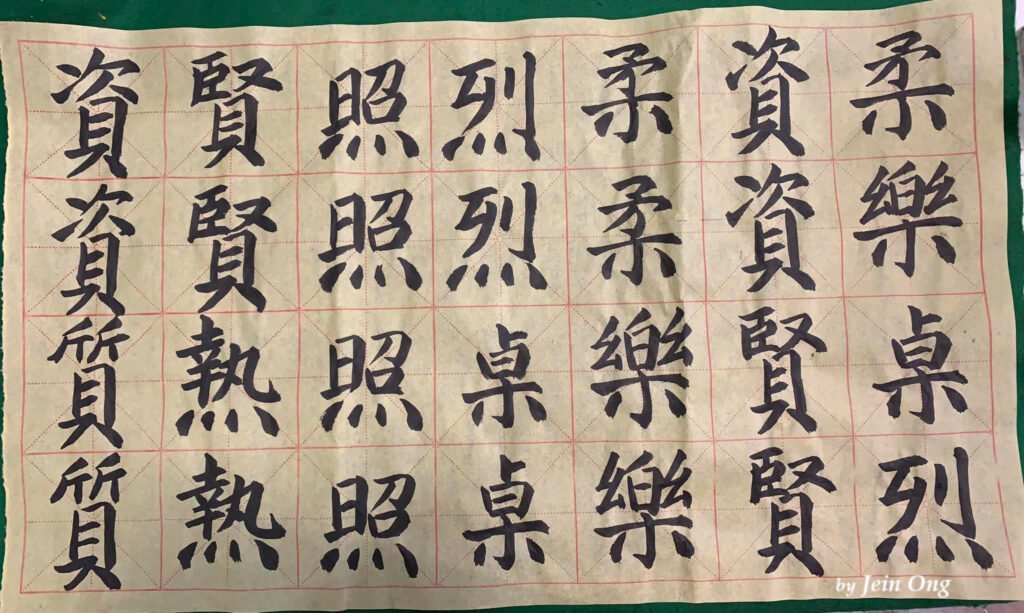 柔樂桌烈
資資賢賢
柔柔樂樂
烈烈桌桌
照照照照
賢賢熱熱
資資質質
by Jein Ong